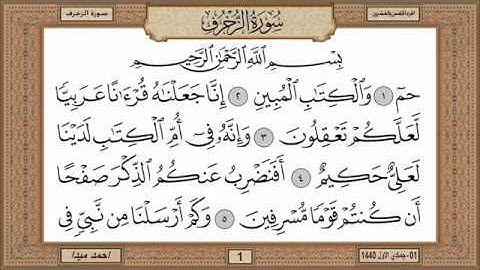 الجزء الخامس والعشرون
سورة الزخرف
سُورَةُ الزُّخْرُفِ
بِسْمِ اللَّهِ الرَّحْمَٰنِ الرَّحِيمِ
حمٓ ١ وَالْكِتَابِ الْمُبِينِ ٢ إِنَّا جَعَلْنَاهُ قُرْءَانًا عَرَبِيًّا
لَّعَلَّكُمْ تَعْقِلُونَ ٣ وَإِنَّهُ فِىٓ أُمِّ الْكِتَابِ لَدَيْنَا
لَعَلِىٌّ حَكِيمٌ ٤ أَفَنَضْرِبُ عَنكُمُ الذِّكْرَ صَفْحًا
أَن كُنتُمْ قَوْمًا مُّسْرِفِينَ ٥ وَكَمْ أَرْسَلْنَا مِن نَّبِىٍّ فِى
01- جمادى الاول 1440
1
احمد ميدا